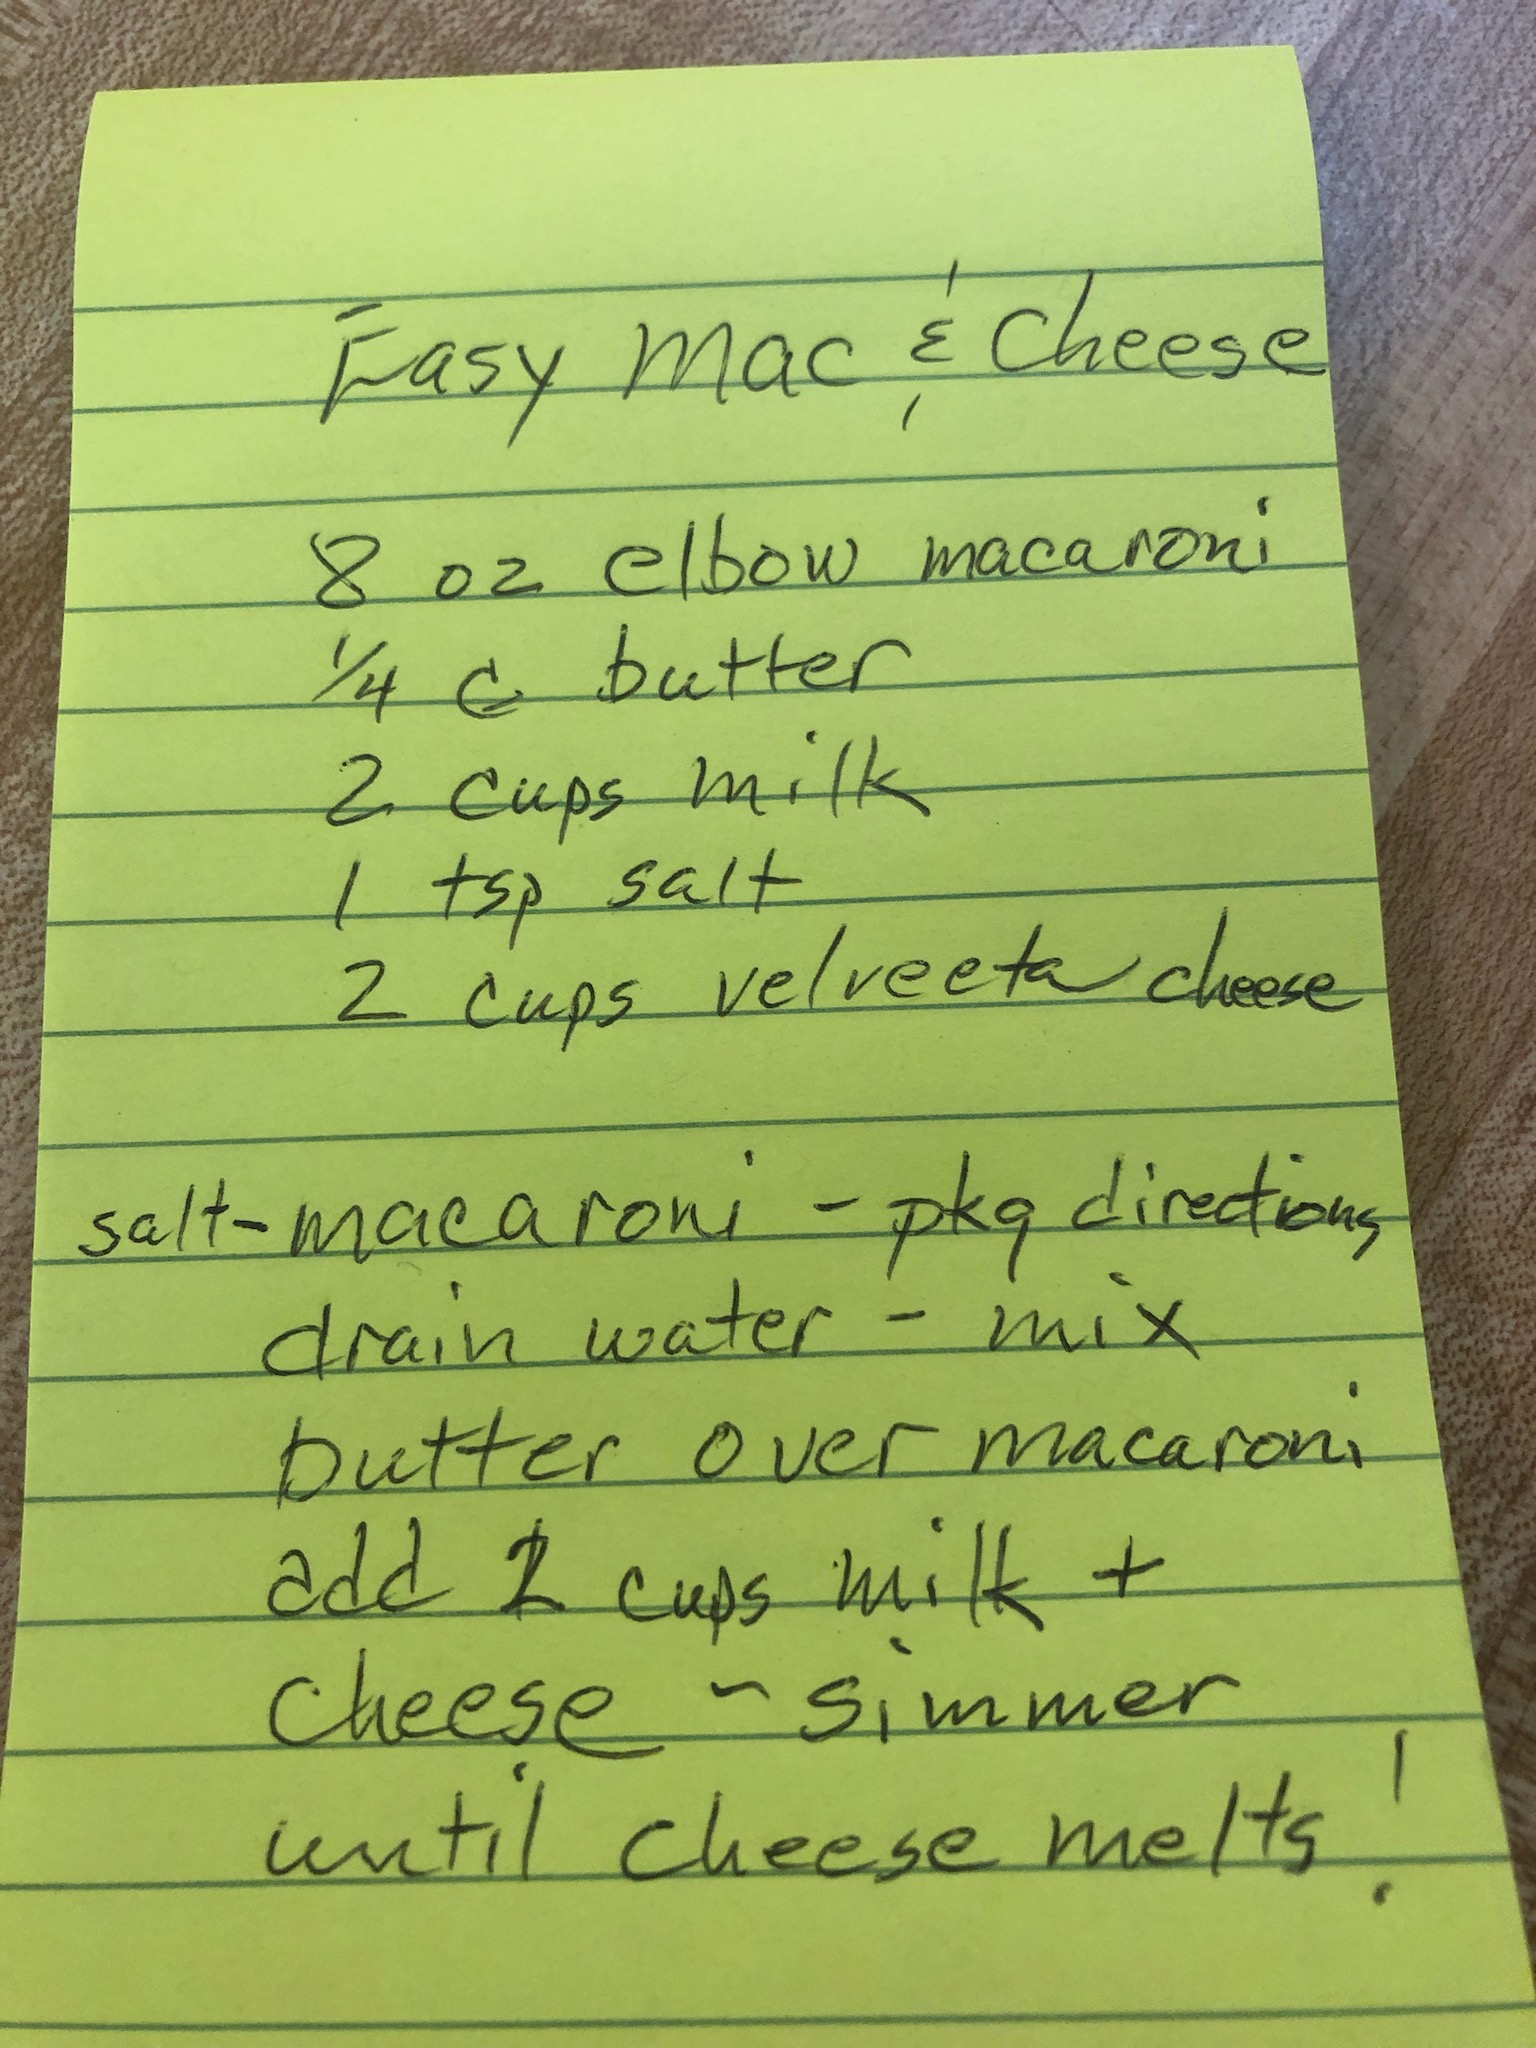 Easy Mac & Cheese
8 oz elbow macaroni
1/4 c butter
2 cups milk
1 tsp salt
2 cups velveeta cheese
salt-macaroni - pkg directions
drain water - mix
butter over macaroni
add 2 cups milk +
cheese - simmer
until cheese melts!